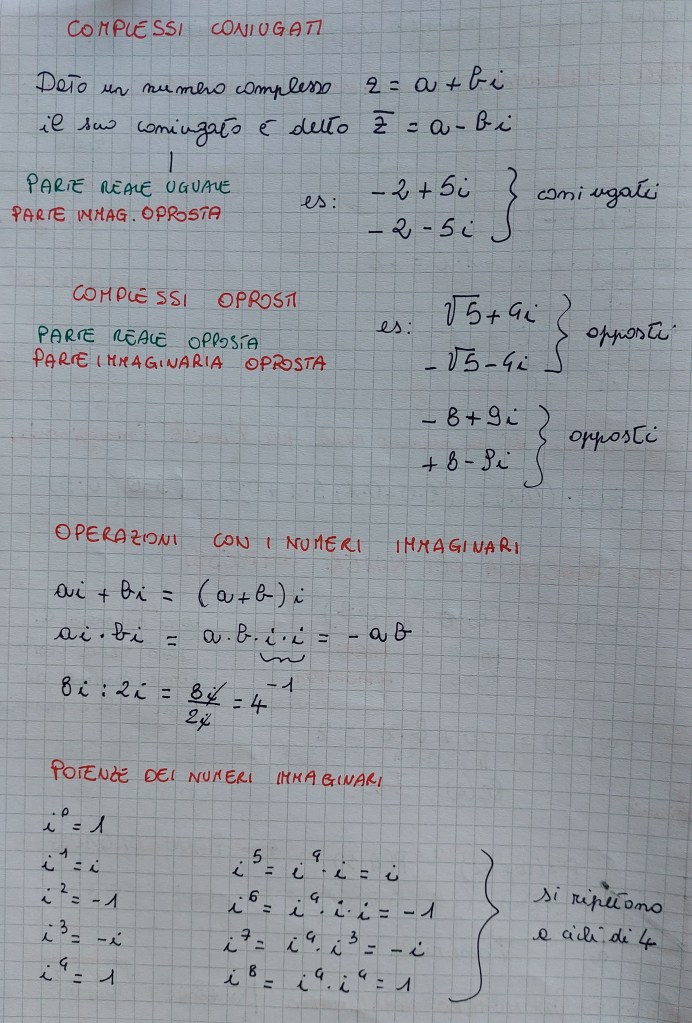 COMPLESSI CONIUGATI
Dato un numero complesso z = a + bi
il suo coniugato è detto z̅ = a - bi
PARTE REALE UGUALE
PARTE IMMAG. OPPOSTA
es: -2 + 5i
-2 - 5i } coniugati
COMPLESSI OPPOSTI
PARTE REALE OPPOSTA
PARTE IMMAGINARIA OPPOSTA
es: √5 + 4i
-√5 - 4i } opposti
-8 + 9i
+8 - 9i } opposti
OPERAZIONI CON I NUMERI IMMAGINARI
ai + bi = (a+b)i
ai · bi = a·b·i·i = -ab
-1
8i : 2i = 8i/2i = 4
POTENZE DEI NUMERI IMMAGINARI
i⁰ = 1
i¹ = i
i² = -1
i³ = -i
i⁴ = 1
i⁵ = i⁴·i = i
i⁶ = i⁴·i·i = -1
i⁷ = i⁴·i³ = -i
i⁸ = i⁴·i⁴ = 1
si ripetono
a cicli di 4